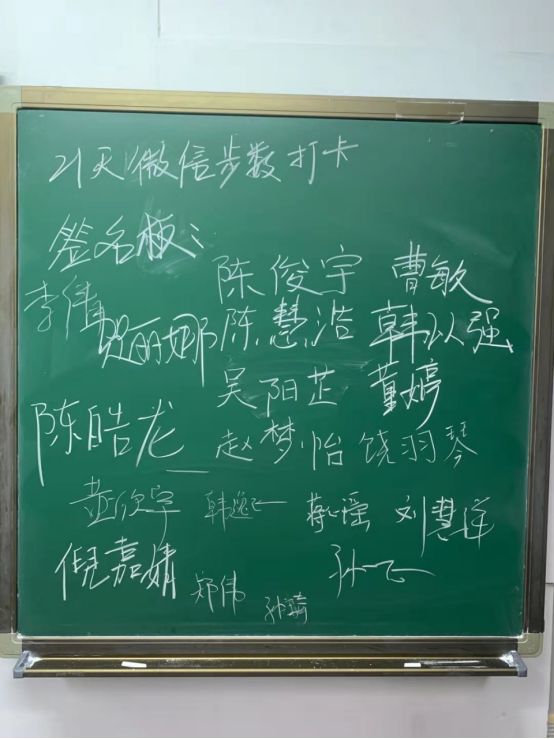 21天微信步数打卡
签名板:
陈俊宇 曹敏
李伟 贺丽娜 陈慧浩 韩以强
吴阳芷 董婷
陈皓龙 赵梦怡 饶羽琴
黄欣宇 韩逸飞 蒋心瑶 刘慧洋
倪嘉婧 郑伟 孙琦 孙飞